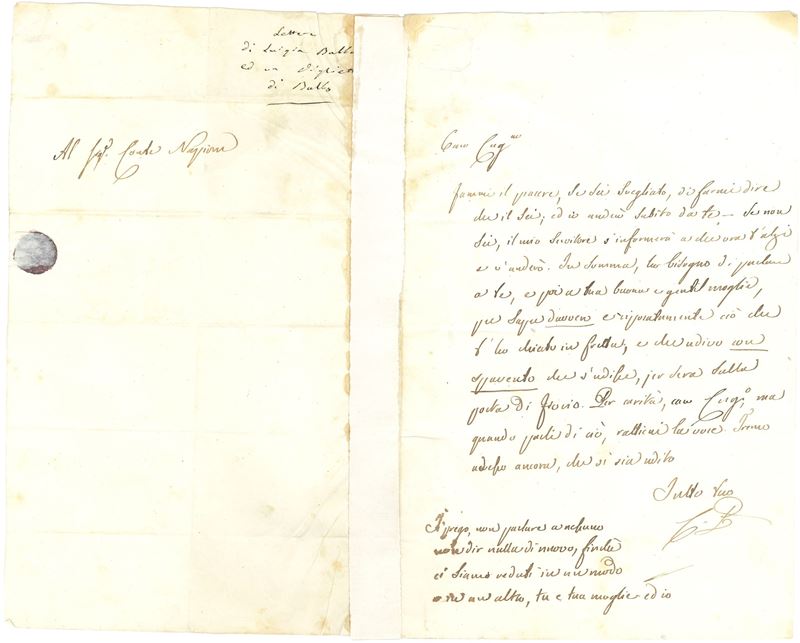 Lettera
di Luigia Balbo
ed un Biglietto
di Balbo
Al Sigr. Conte Napione
Caro Cugno
fammi il piacere, se sei svegliato, di farmi dire
che il sei, ed io andrò subito da te — se non
sei, il mio servitore s'informerà a che ora t'alzi
e v'andrò. In somma, ho bisogno di parlare
a te, e poi a tua buona e gentil moglie,
per sapere davvero e riposatamente ciò che
t'ho chiesto in fretta, e che udivo con
spavento che s'udisse, jer sera sulla
porta di Provio. Per carità, caro Cugo, ma
quando parli di ciò, rattieni la voce. Tremo
adesso ancora, che si sia udito
Tutto tuo
Ti prego, non parlare a nessuno
non dir nulla di nuovo, finchè
ci siamo veduti in un modo
o in un altro, tu e tua moglie ed io